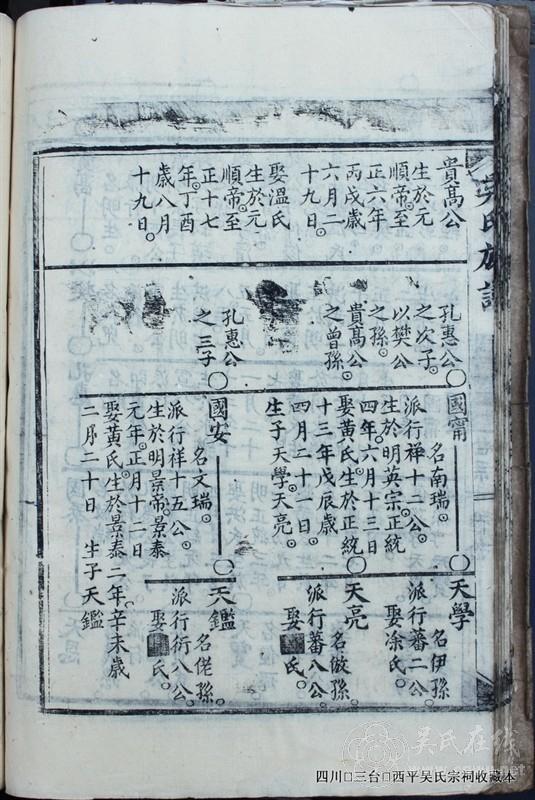 吳氏族譜
貴髙公
生於元
順帝至
正六年
丙戌歲
六月二
十九日。
娶溫氏
生於元
順帝至
正十七
年丁酉
歲八月
十九日。
孔惠公
之次子。
以樊公
之孫。
貴髙公
之曾孫。
孔惠公
之三子
國甯
名南瑞。
派行祥十二公。
生於明英宗正統
四年六月十三日
娶黃氏生於正統
十三年戊辰歲
四月二十一日。
生子天學天亮。
國安
名文瑞。
派行祥十五公。
生於明景帝景泰
元年正月十二日
娶黃氏生於景泰二年辛未歲
二月二十日 生子天鑑
天學
名伊孫。
派行蕃二公。
娶凃氏。
天亮
名倣孫。
派行蕃八公。
娶 氏。
天鑑
名佬孫。
派行衍八公。
娶 氏。
吴氏在线
四川□三台□西平吴氏宗祠收藏本